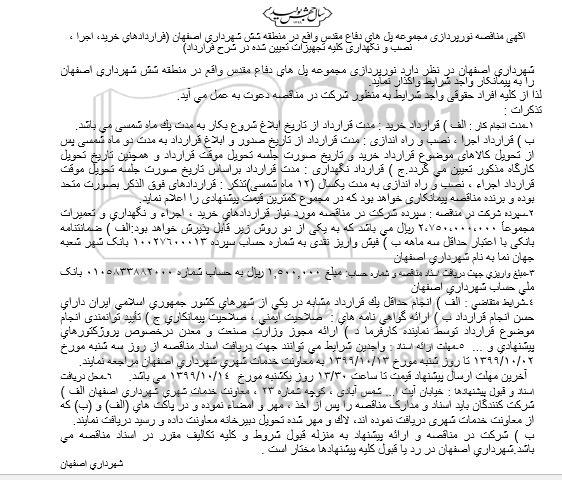 سال جهش تولید
اگهی مناقصه نورپردازی مجموعه پل های دفاع مقدس واقع در منطقه شش شهرداری اصفهان (قراردادهای خرید، اجرا ،
نصب و نگهداری کلیه تجهیزات تعیین شده در شرح قرارداد)
شهرداری اصفهان در نظر دارد نورپردازی مجموعه پل های دفاع مقدس واقع در منطقه شش شهرداری اصفهان
را به پیمانکار واجد شرایط واگذار نماید.
لذا از کلیه افراد حقوقی واجد شرایط به منظور شرکت در مناقصه دعوت به عمل می آید.
تذکرات :
۱-مدت انجام کار : الف ) قرارداد خرید : مدت قرارداد از تاریخ ابلاغ شروع بکار به مدت یك ماه شمسی می باشد.
ب ) قرارداد اجرا ، نصب و راه اندازی : مدت قرارداد از تاریخ صدور و ابلاغ قرارداد به مدت دو ماه شمسی پس
از تحویل کالاهای موضوع قرارداد خرید و تاریخ صورت جلسه تحویل موقت قرارداد و همچنین تاریخ تحویل
کارگاه مذکور تعیین می گردد.ج ) قرارداد نگهداری : مدت قرارداد براساس تاریخ صورت جلسه تحویل موقت
قرارداد اجراء ، نصب و راه اندازی به مدت یکسال (۱۲ ماه شمسی)تذکر : قراردادهای فوق الذکر بصورت متحد
بوده و برنده مناقصه پیمانکاری خواهد بود که در مجموع کمترین قیمت پیشنهادی را اعلام نماید.
۲-سپرده شرکت در مناقصه : سپرده شرکت در مناقصه مورد نیاز قراردادهای خرید ، اجراء و نگهداری و تعمیرات
مجموعاً ۲،۷۵۰،۰۰۰،۰۰۰ ریال می باشد که به یکی از دو روش زیر قابل پذیرش خواهد بود:الف ) ضمانتنامه
بانکی با اعتبار حداقل سه ماهه ب ) فیش واریز نقدی به شماره حساب سپرده ۱۰۰۲۷۶۰۰۰۱۳ بانک شهر شعبه
جهان نما به نام شهرداری اصفهان
۳-مبلغ واریزی جهت دریافت اسناد مناقصه و شماره حساب: مبلغ ۱,۵۰۰,۰۰۰ ریال به حساب شماره ۰۱۰۵۸۳۳۸۸۲۰۰۰ بانک
ملی حساب شهرداری اصفهان
۴-شرایط متقاضی : الف ) انجام حداقل یك قرارداد مشابه در یکی از شهرهای کشور جمهوری اسلامی ایران دارای
حسن انجام قرارداد ب ) ارائه گواهی نامه های : صلاحیت ایمنی ، صلاحیت پیمانکاری ج ) تأیید توانمندی انجام
موضوع قرارداد توسط نماینده کارفرما د ) ارائه مجوز وزارت صنعت و معدن درخصوص پروژکتورهای
پیشنهادی و ... ۵-مهلت ارائه اسناد : واجدین شرایط می توانند جهت دریافت اسناد مناقصه از روز سه شنبه مورخ
۱۳۹۹/۱۰/۰۲ تا روز شنبه مورخ ۱۳۹۹/۱۰/۱۳ به معاونت خدمات شهری شهرداری اصفهان مراجعه نمایند.
آخرین مهلت ارسال پیشنهاد قیمت تا ساعت ۱۳/۳۰ روز یکشنبه مورخ ۱۳۹۹/۱۰/۱۴ می باشد. ۶-محل دریافت
اسناد و قبول پیشنهادها : خیابان آیت ا... شمس آبادی ، کوچه شماره ۲۳ ، معاونت خدمات شهری شهرداری اصفهان الف )
شرکت کنندگان باید اسناد و مدارک مناقصه را پس از اخذ ، مهر و امضاء نموده و در پاکت های (الف) و (ب) که
از معاونت خدمات شهری دریافت نموده اند، لاك و مهر شده تحویل دبیرخانه معاونت داده و رسید دریافت نمایند.
ب ) شرکت در مناقصه و ارائه پیشنهاد به منزله قبول شروط و کلیه تکالیف مقرر در اسناد مناقصه می
باشد.شهرداری اصفهان در رد یا قبول کلیه پیشنهادها مختار است .
شهرداری اصفهان